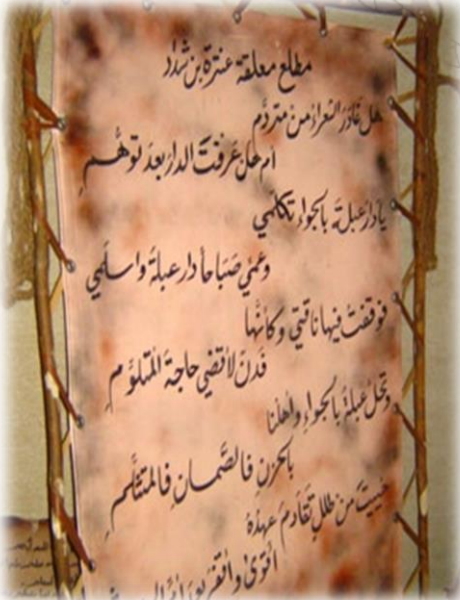 مطلع معلقة عنترة بن شداد
هل غادر الشعراء من متردم
أم هل عرفت الدار بعد توهم
يا دار عبلة بالجواء تكلمي
وعمي صباحاً دار عبلة واسلمي
فوقفت فيها ناقتي وكأنها
فدن لأقضي حاجة المتلوم
وتحل عبلة بالجواء وأهلنا
بالحزن فالصمان فالمتثلم
حييت من طلل تقادم عهده
أقوى وأقفر بعد أم